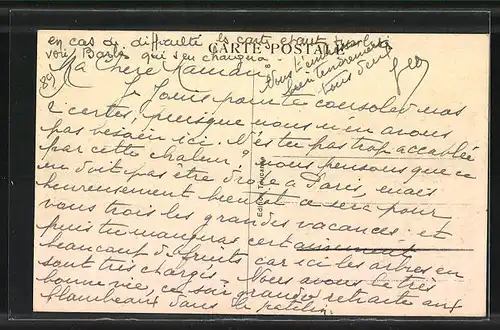 en cas de difficulté les cartes étant
voir Barbès qui s'en chargera.
CARTE POSTALE
Nous t'embrassons
bien tendrement
tous deux
Geo
89
Ma Chère Maman,
Je Joins pour tu consoles nos
2 cartes, puisque nous n'en avons
pas besoin ici. N'es tu pas trop accablée
par cette chaleur? nous pensons que ce
ne doit pas être drôle à Paris, mais
heureusement bientôt ce sera pour
vous trois les grandes vacances. et
puis tu mangeras cert
beaucoup de fruits car ici les arbres en
sont très chargés. Nous avons le très
bonne vie, ce soir grande retraite aux
flambeaux dans le patelin.
Edition